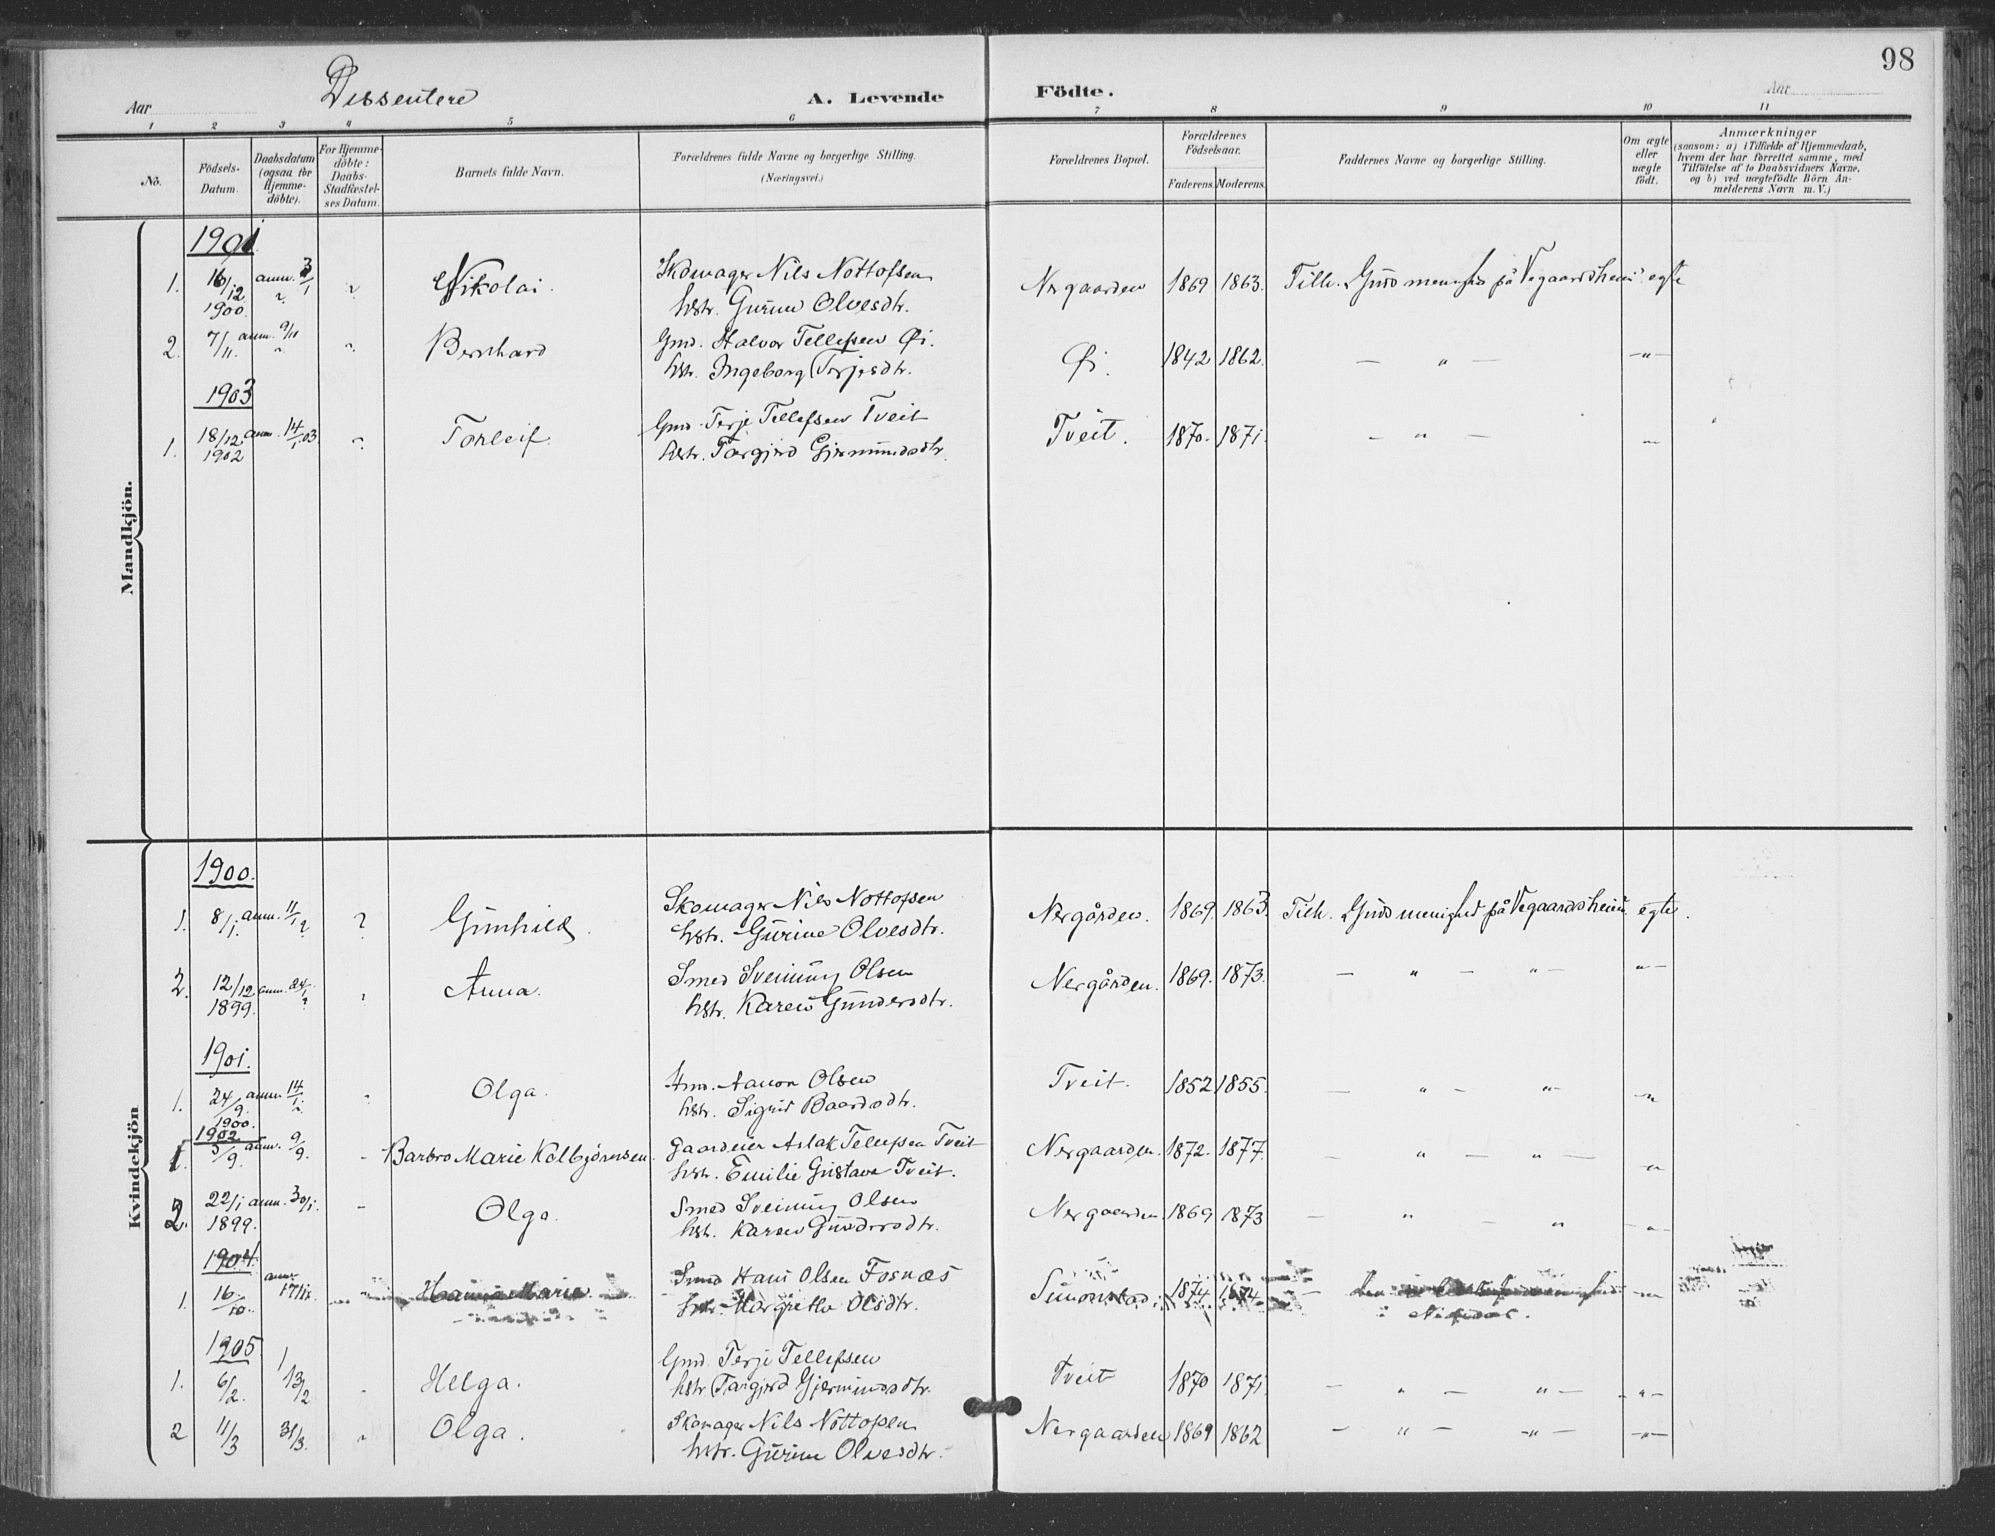 98
Dissentere
Aar
A. Levende Födte.
Aar
1 2 3 4 5 6 7 8 9 10 11
No.
Födsels-Datum.
Daabsdatum (ogsaa for Hjemme-döbte).
For Hjemme-döbte: Daabs-Stadfæstel-ses Datum.
Barnets fulde Navn.
Forældrenes fulde Navne og borgerlige Stilling. (Næringsvei.)
Forældrenes Bopæl.
Forældrenes Födselsaar.
Faderens. Moderens.
Faddernes Navne og borgerlige Stilling.
Om ægte eller uægte födt.
Anmærkninger (saasom: a) i Tilfælde af Hjemmedaab, hvem der har forrettet samme, med Tilföielse af to Daabsvidners Navne, og b) ved uægtefödte Börn An-melderens Navn m. V.)
Mandkjön.
1901
1. 16/12 1900 anm. 3/1 Nikolai. Skomager Nils Nottofsen Nergaarden 1869 1863. Tilh. Guds menighed på Vegaardsheien egte
hstr. Gurine Olvesdtr.
2. 7/11. anm. 9/11 " Bernhard Gmd. Halvor Tellefsen Øi. Øi. 1842 1862. — " — —"—
hstr. Ingeborg Terjesdtr.
1903
1. 18/12 1902 anm. 14/1 03 " Torleif. Gmd. Terje Tellefsen Tveit Tveit. 1870. 1871. — " —
hstr. Targjerd Gjermundsdtr.
Kvindekjön
1900.
1. 8/1. anm. 11/1 ? ? Gunhild. Skomager Nils Nottofsen Nergården. 1869. 1863. Tilh. Guds menighed på Vegaardsheien egte.
hstr. Gurine Olvesdtr.
2. 12/12 1899. anm. 24/1 Anna. Smed Sveinung Olsen Nergården. 1869. 1873. — " — " — " —
hstr. Karen Gundersdtr.
1901.
1. 24/9. 1900. anm. 14/1. Olga. Aanon Olsen Tveit. 1852 1855. — " — "
hstr. Sigrid Baardsdtr.
1902
1. 5/9. anm. 9/9. Barbro Marie Kolbjørnsen. Gaardeier Aslak Tellefsen Tveit Nergaarden. 1872. 1877. — " — " —
hstr. Emilie Gustava Tveit.
2. 22/1 1899. anm. 30/1. Olga. Smed Sveinung Olsen Nergaarden. 1869 1873 — " — "
hstr. Karen Gundersdtr.
1904.
1. 16/10. anm. Hanna Marie. Smed Hans Olsen Fosnæs Simonstad. 1874 1874
hstr. Margrethe Olsdtr.
1905
1. 6/2. 13/2 Helga. Gmd. Terje Tellefsen Tveit 1870 1871. — " — " — — " —
hstr. Targjerd Gjermundsdtr.
2 11/3 31/3. " Olga. Skomager Nils Nottofsen Nergaarden 1869 1862 — " — — " — — " —
hstr. Gurine Olvesdtr.